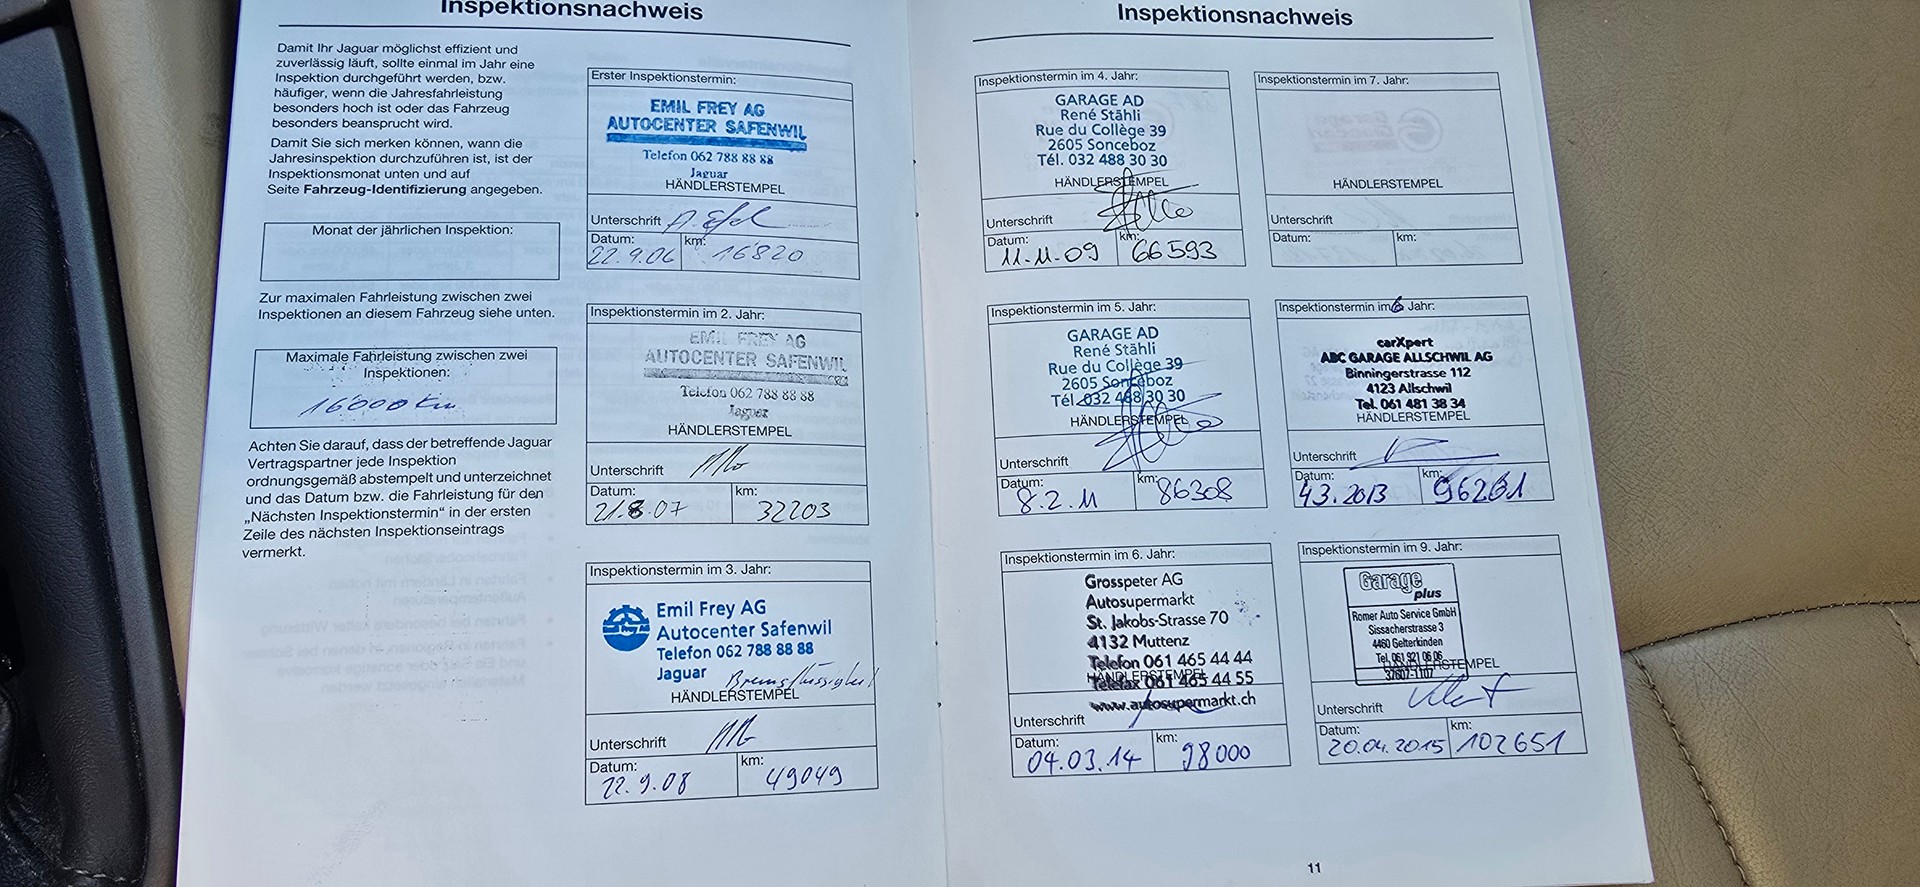 Inspektionsnachweis
Damit Ihr Jaguar möglichst effizient und
zuverlässig läuft, sollte einmal im Jahr eine
Inspektion durchgeführt werden, bzw.
häufiger, wenn die Jahresfahrleistung
besonders hoch ist oder das Fahrzeug
besonders beansprucht wird.
Damit Sie sich merken können, wann die
Jahresinspektion durchzuführen ist, ist der
Inspektionsmonat unten und auf
Seite Fahrzeug-Identifizierung angegeben.
Monat der jährlichen Inspektion:
Zur maximalen Fahrleistung zwischen zwei
Inspektionen an diesem Fahrzeug siehe unten.
Maximale Fahrleistung zwischen zwei
Inspektionen:
16'000 km
Achten Sie darauf, dass der betreffende Jaguar
Vertragspartner jede Inspektion
ordnungsgemäß abstempelt und unterzeichnet
und das Datum bzw. die Fahrleistung für den
„Nächsten Inspektionstermin“ in der ersten
Zeile des nächsten Inspektionseintrags
vermerkt.
Erster Inspektionstermin:
EMIL FREY AG
AUTOCENTER SAFENWIL
Telefon 062 788 88 88
Jaguar
HÄNDLERSTEMPEL
Unterschrift
Datum: km:
22.9.06 16820
Inspektionstermin im 2. Jahr:
EMIL FREY AG
AUTOCENTER SAFENWIL
Telefon 062 788 88 88
Jaguar
HÄNDLERSTEMPEL
Unterschrift
Datum: km:
21.8.07 32203
Inspektionstermin im 3. Jahr:
Emil Frey AG
Emil Frey AG
Autocenter Safenwil
Telefon 062 788 88 88
Jaguar Bremsflüssigkeit
HÄNDLERSTEMPEL
Unterschrift
Datum: km:
22.9.08 49049
Inspektionsnachweis
Inspektionstermin im 4. Jahr:
GARAGE AD
René Stähli
Rue du Collège 39
2605 Sonceboz
Tél. 032 488 30 30
HÄNDLERSTEMPEL
Unterschrift
Datum: km:
11.11.09 66593
Inspektionstermin im 5. Jahr:
GARAGE AD
René Stähli
Rue du Collège 39
2605 Sonceboz
Tél. 032 488 30 30
HÄNDLERSTEMPEL
Unterschrift
Datum: km:
8.2.11 86308
Inspektionstermin im 6. Jahr:
Grosspeter AG
Autosupermarkt
St. Jakobs-Strasse 70
4132 Muttenz
Telefon 061 465 44 44
HÄNDLERSTEMPEL
Telefax 061 465 44 55
www.autosupermarkt.ch
Unterschrift
Datum: km:
04.03.14 98000
Inspektionstermin im 7. Jahr:
HÄNDLERSTEMPEL
Unterschrift
Datum: km:
Inspektionstermin im Jahr:
carXpert
ABC GARAGE ALLSCHWIL AG
Binningerstrasse 112
4123 Allschwil
Tel. 061 481 38 34
HÄNDLERSTEMPEL
Unterschrift
Datum: km:
4.3.2013 96261
Inspektionstermin im 9. Jahr:
Garage
plus
Romer Auto Service GmbH
Sissacherstrasse 3
4460 Gelterkinden
Tel. 061 921 06 06
HÄNDLERSTEMPEL
37607-1107
Unterschrift
Datum: km:
20.04.2015 102651
11